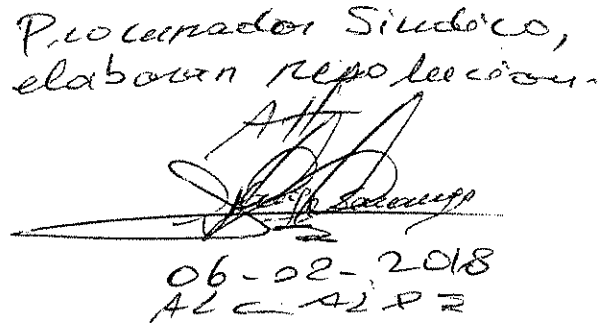 Procurador Síndico,
elaborar resolución.
Att
06-02-2018
ALCALDE